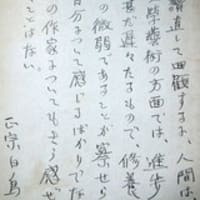 して回顧するに、人間は、
藝術の方面では、進歩
甚だ遅々たるもので、修養
の微弱であることが察せら
自分について感じるばかりでな
の作家についてもさう感ぜ
ことはない。
正宗白鳥